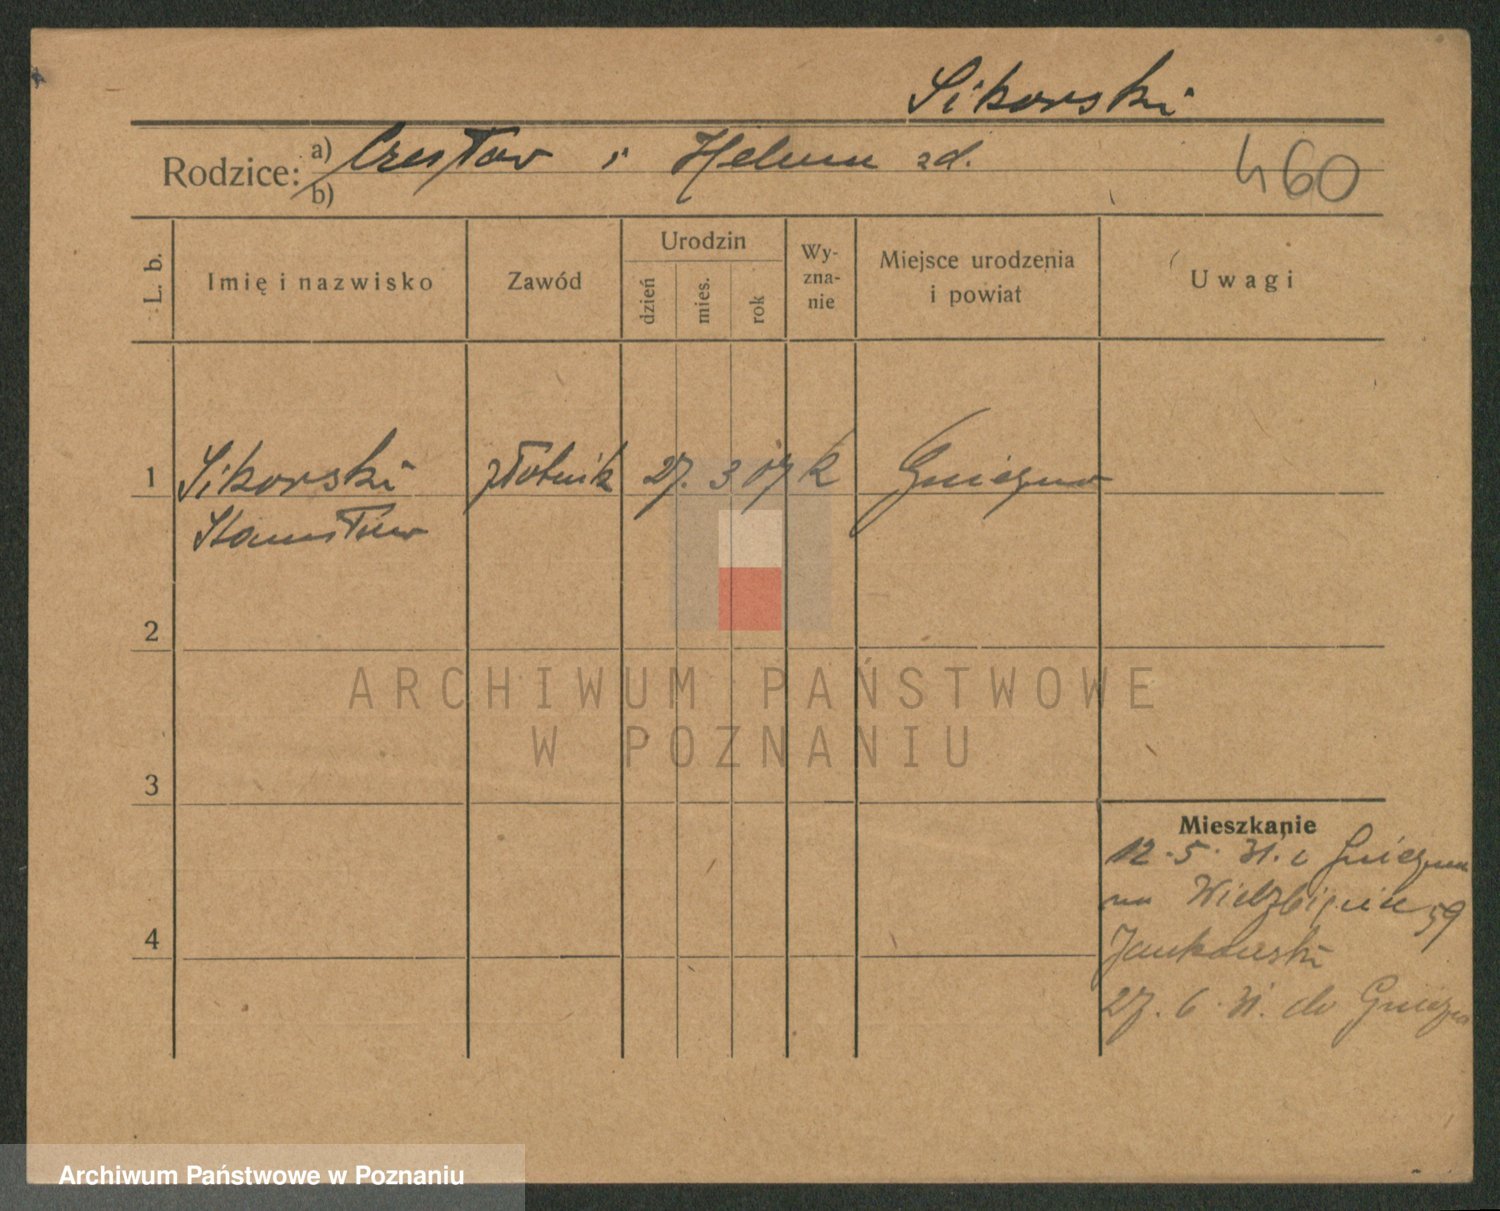 Sikorski
Rodzice: a) Czesław i Helena zd.
b)
460
L. b.
Imię i nazwisko
Zawód
Urodzin
dzień
mies.
rok
Wy-
zna-
nie
Miejsce urodzenia
i powiat
Uwagi
1 Sikorski złotnik 27. 3 07 k Gniezno
Stanisław
2
3
4
Mieszkanie
12.5.31. z Gniezna
na 59
Jankowski
27.6.31. do Gniezna
ARCHIWUM PAŃSTWOWE
W POZNANIU
Archiwum Państwowe w Poznaniu